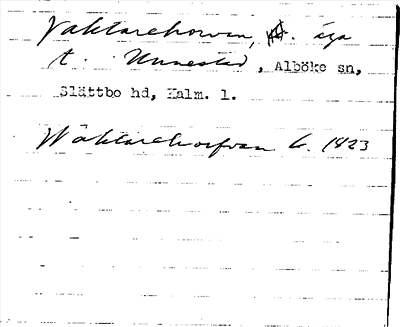 Vaktarehorvan, äga
t. Unnestad, Alböke sn,
Slättbo hd, Kalm. l.
Wäktarehorfvan L. 1823